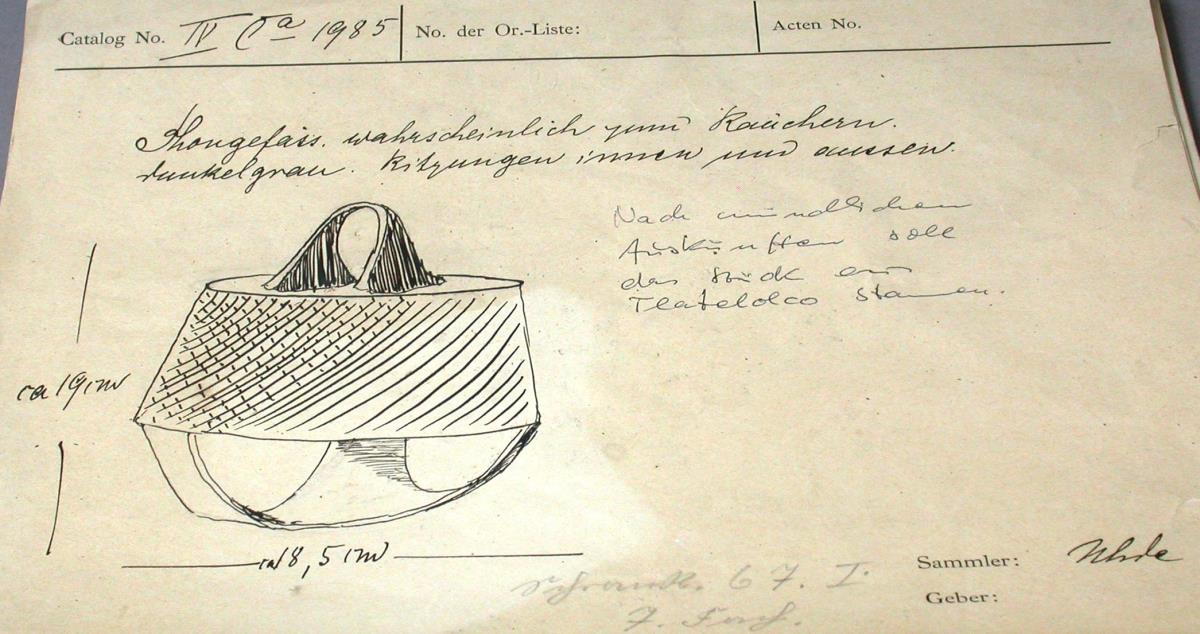 Catalog No. IV Ca 1985 No. der Or.-Liste: Acten No.
Thongefäss. wahrscheinlich zum Räuchern.
dunkelgrau. Ritzungen innen und aussen.
Nach mündlichen
Auskünften soll
das Stück aus
Tlatelolco stammen.
ca 19 cm
ca 18,5 cm
Schrank. 67. I.
7. Fach.
Sammler: Uhde
Geber: